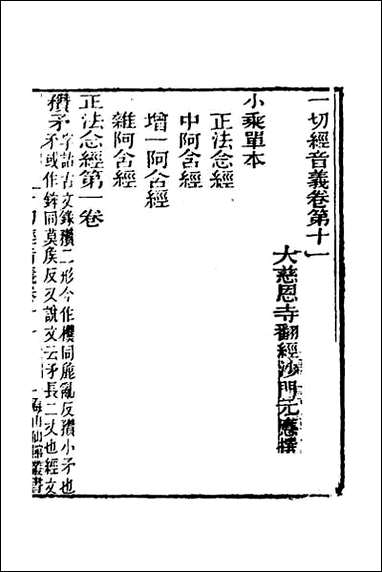 一切經音義卷第十一
大慈恩寺翻經沙門元應撰
小乘單本
正法念經
中阿含經
增一阿含經
雜阿含經
正法念經第一卷
穳矛字詁古文錄穳二形今作欑同麄亂反穳小矛也
矛或作鉾同莫侯反說文云矛長二丈也經文
一切經音義卷十一 一 海山仙館叢書